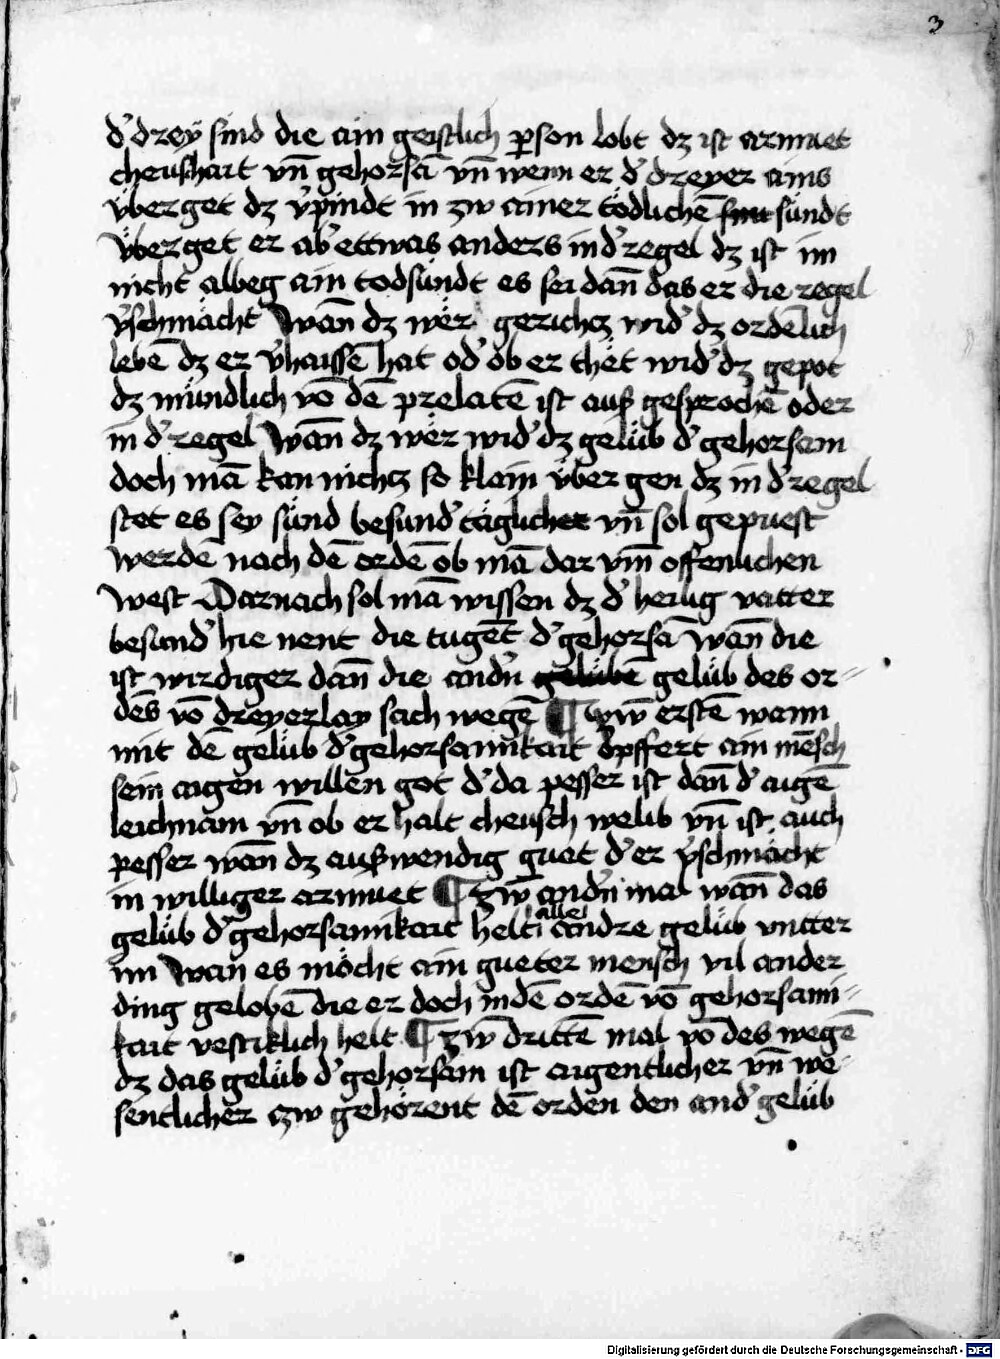 3
d' drey sind die ain geistlich pson lobt dz ist armuet
cheushait vn̄ gehorsā vn̄ wenn er d' dreyer ains
v̈berget dz v'pindt in zw ainer tödlichē sünt sündt
v̈berget er ab' ettwas anders in d' regel dz ist im
nicht albeg ain todsündt es sei dan̄ das er die regel
v'schmächt Wan̄ dz wër gerichcz wid' dz ordēlich
lebē dz er v'haissē hat od' ob er thët wid' dz gepot
dz mündlich vō dē prelatē ist auß gesprochē oder
in d' regel Wan̄ dz wër wid' dz gelüb d' gehorsam
doch mā kan nichcz so klain v̈ber gen dz in d' regel
stet es sey sünd besund' täglicher vn̄ sol gepuest
werdē nach dē ordē ob mā dar vm̄ offenlichen
west Darnach sol mā wissen dz d' heilig vatter
besund' hie nent die tugēt d' gehorsā Wan̄ die
ist wirdiger dan̄ die and'n gelübē gelüb des or=
dēs vō dreyerlay sach wegē ¶ Zw̄ erstē wenn
mit dē gelüb d' gehorsamikait öpffert ain mēsch
sein aigen willen got d' da pesser ist dan̄ d' aigē
leichnam vn̄ ob er halt cheusch welib vn̄ ist auch
pesser wan̄ dz außwendig guet d' er v'schmächt
in williger armuet ¶ Zw̄ and'n mal wan̄ das
gelüb d' gehorsamikait helt alle andre gelüb vntter
im Wan es möcht ain gueter mensch vil ander
ding gelobē die er doch in dē ordē vō gehorsami=
kait vestiklich helt ¶ Zw̄ drittē mal vō des wegē
dz das gelüb d' gehorsam ist aigentlicher vn̄ we=
sentlicher czw gehörent dē orden den and' gelüb
Digitalisierung gefördert durch die Deutsche Forschungsgemeinschaft - DFG